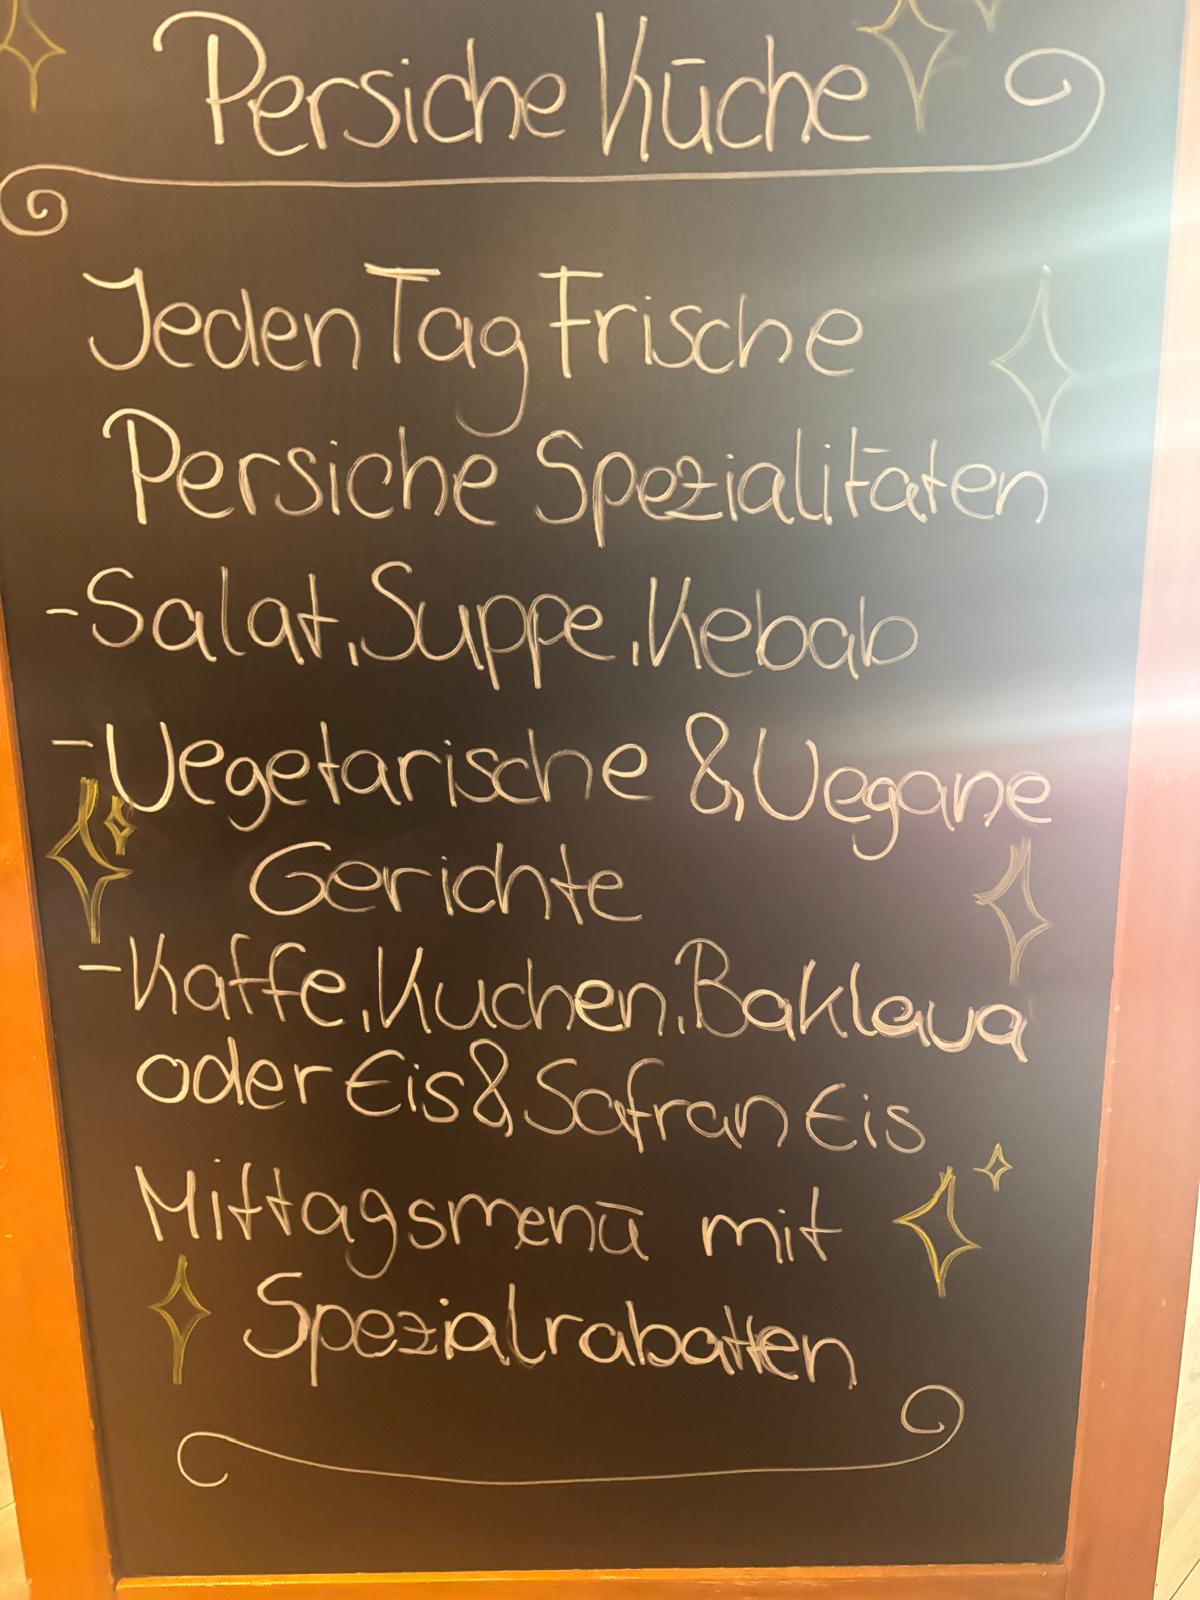 Persiche Küche
Jeden Tag Frische
Persiche Spezialitäten
-Salat, Suppe, Kebab
-Vegetarische & Vegane
Gerichte
-Kaffe, Kuchen, Baklava
oder Eis & Safran Eis
Mittagsmenü mit
Spezialrabatten